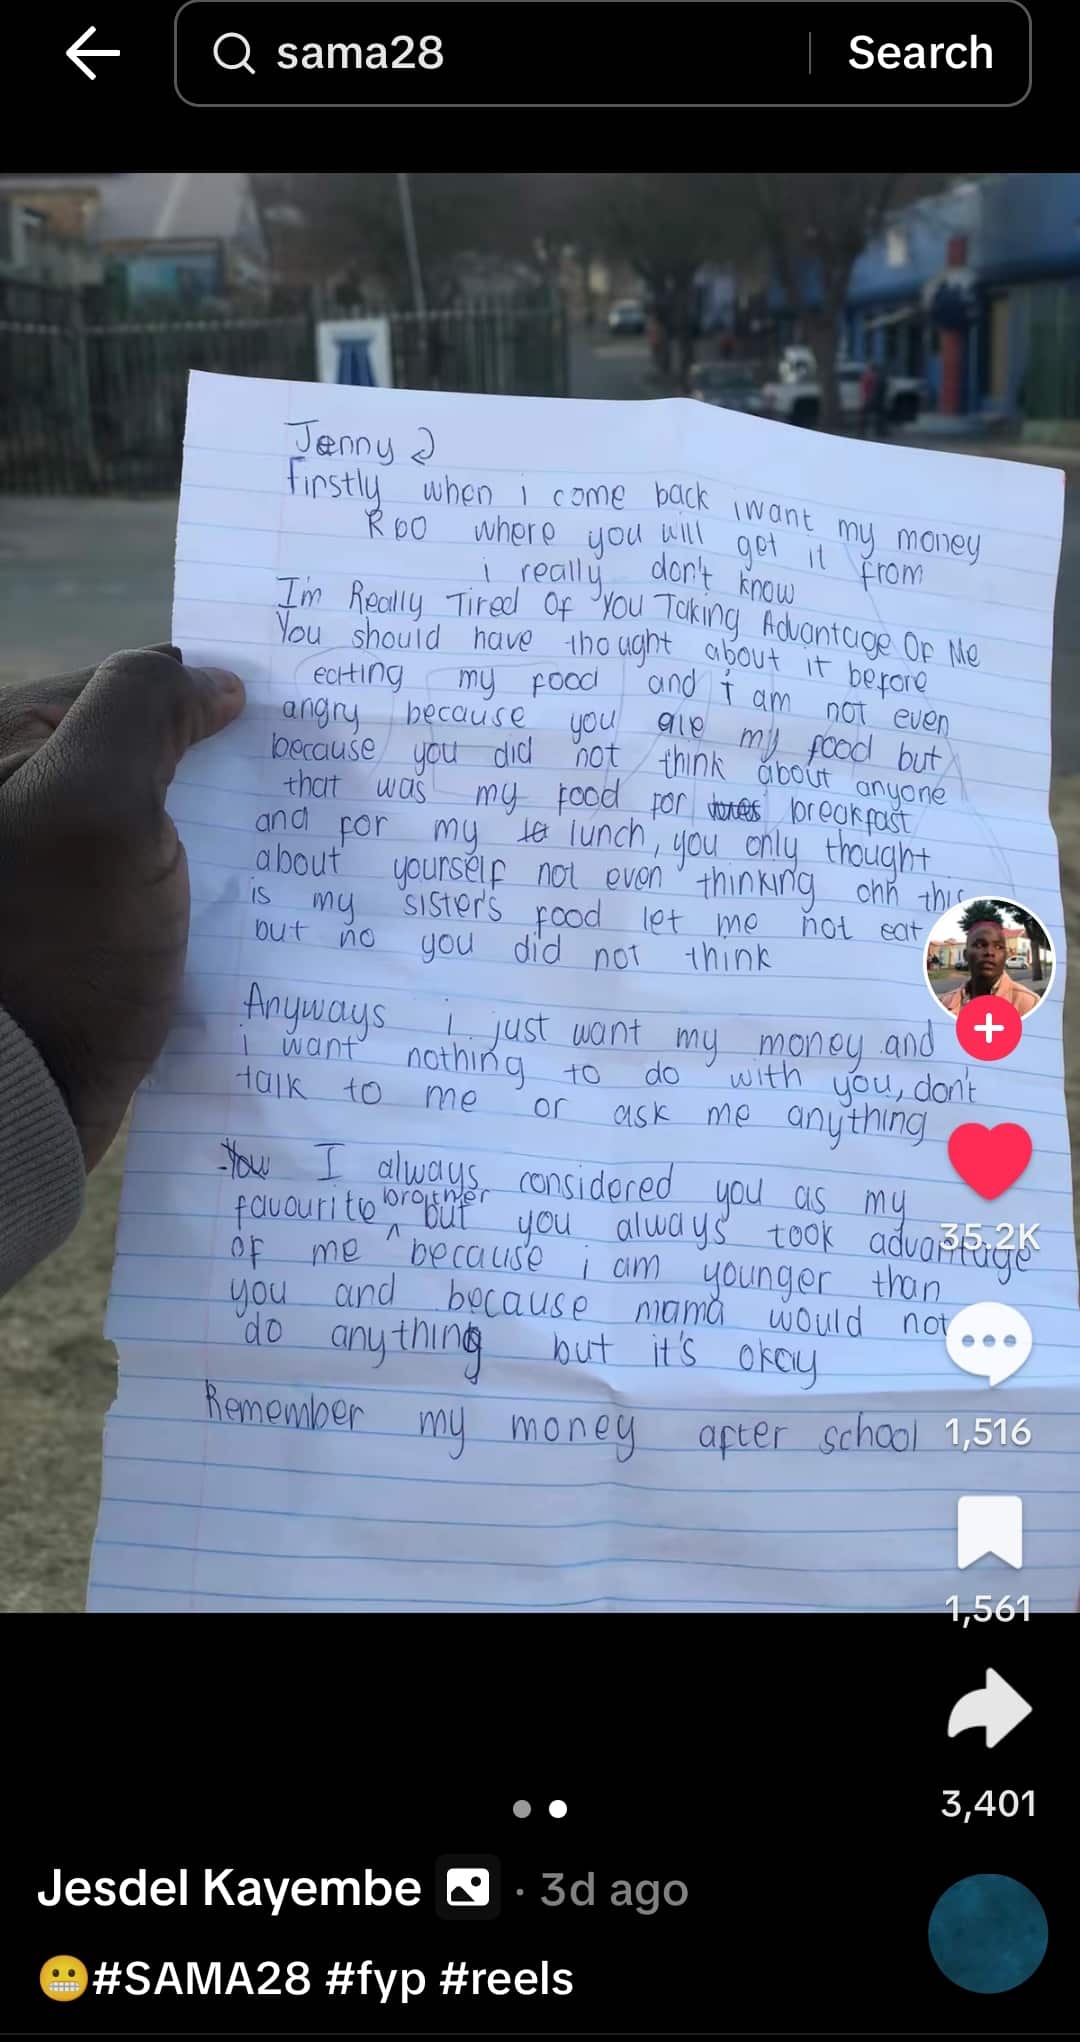 sama28
Search
Jenny 2
firstly when i come back i want my money
where you will get it from
i really don't know
I'm Really Tired Of You Taking Advantage Of Me
You should have thought about it before
eating my food and i am not even
angry because you ate my food but
because you did not think about anyone
that was my food for breakfast
and for my lunch, you only thought
about yourself not even thinking ohh this
is my sister's food let me not eat
but no you did not think
Anyways i just want my money and
i want nothing to do with you, don't
talk to me or ask me anything
I always considered you as my
favourite brother but you always took advantage
of me because i am younger than
you and because mama would not
do anything but it's okay
Remember my money after school
35.2K
1,516
1,561
3,401
Jesdel Kayembe · 3d ago
😬#SAMA28 #fyp #reels